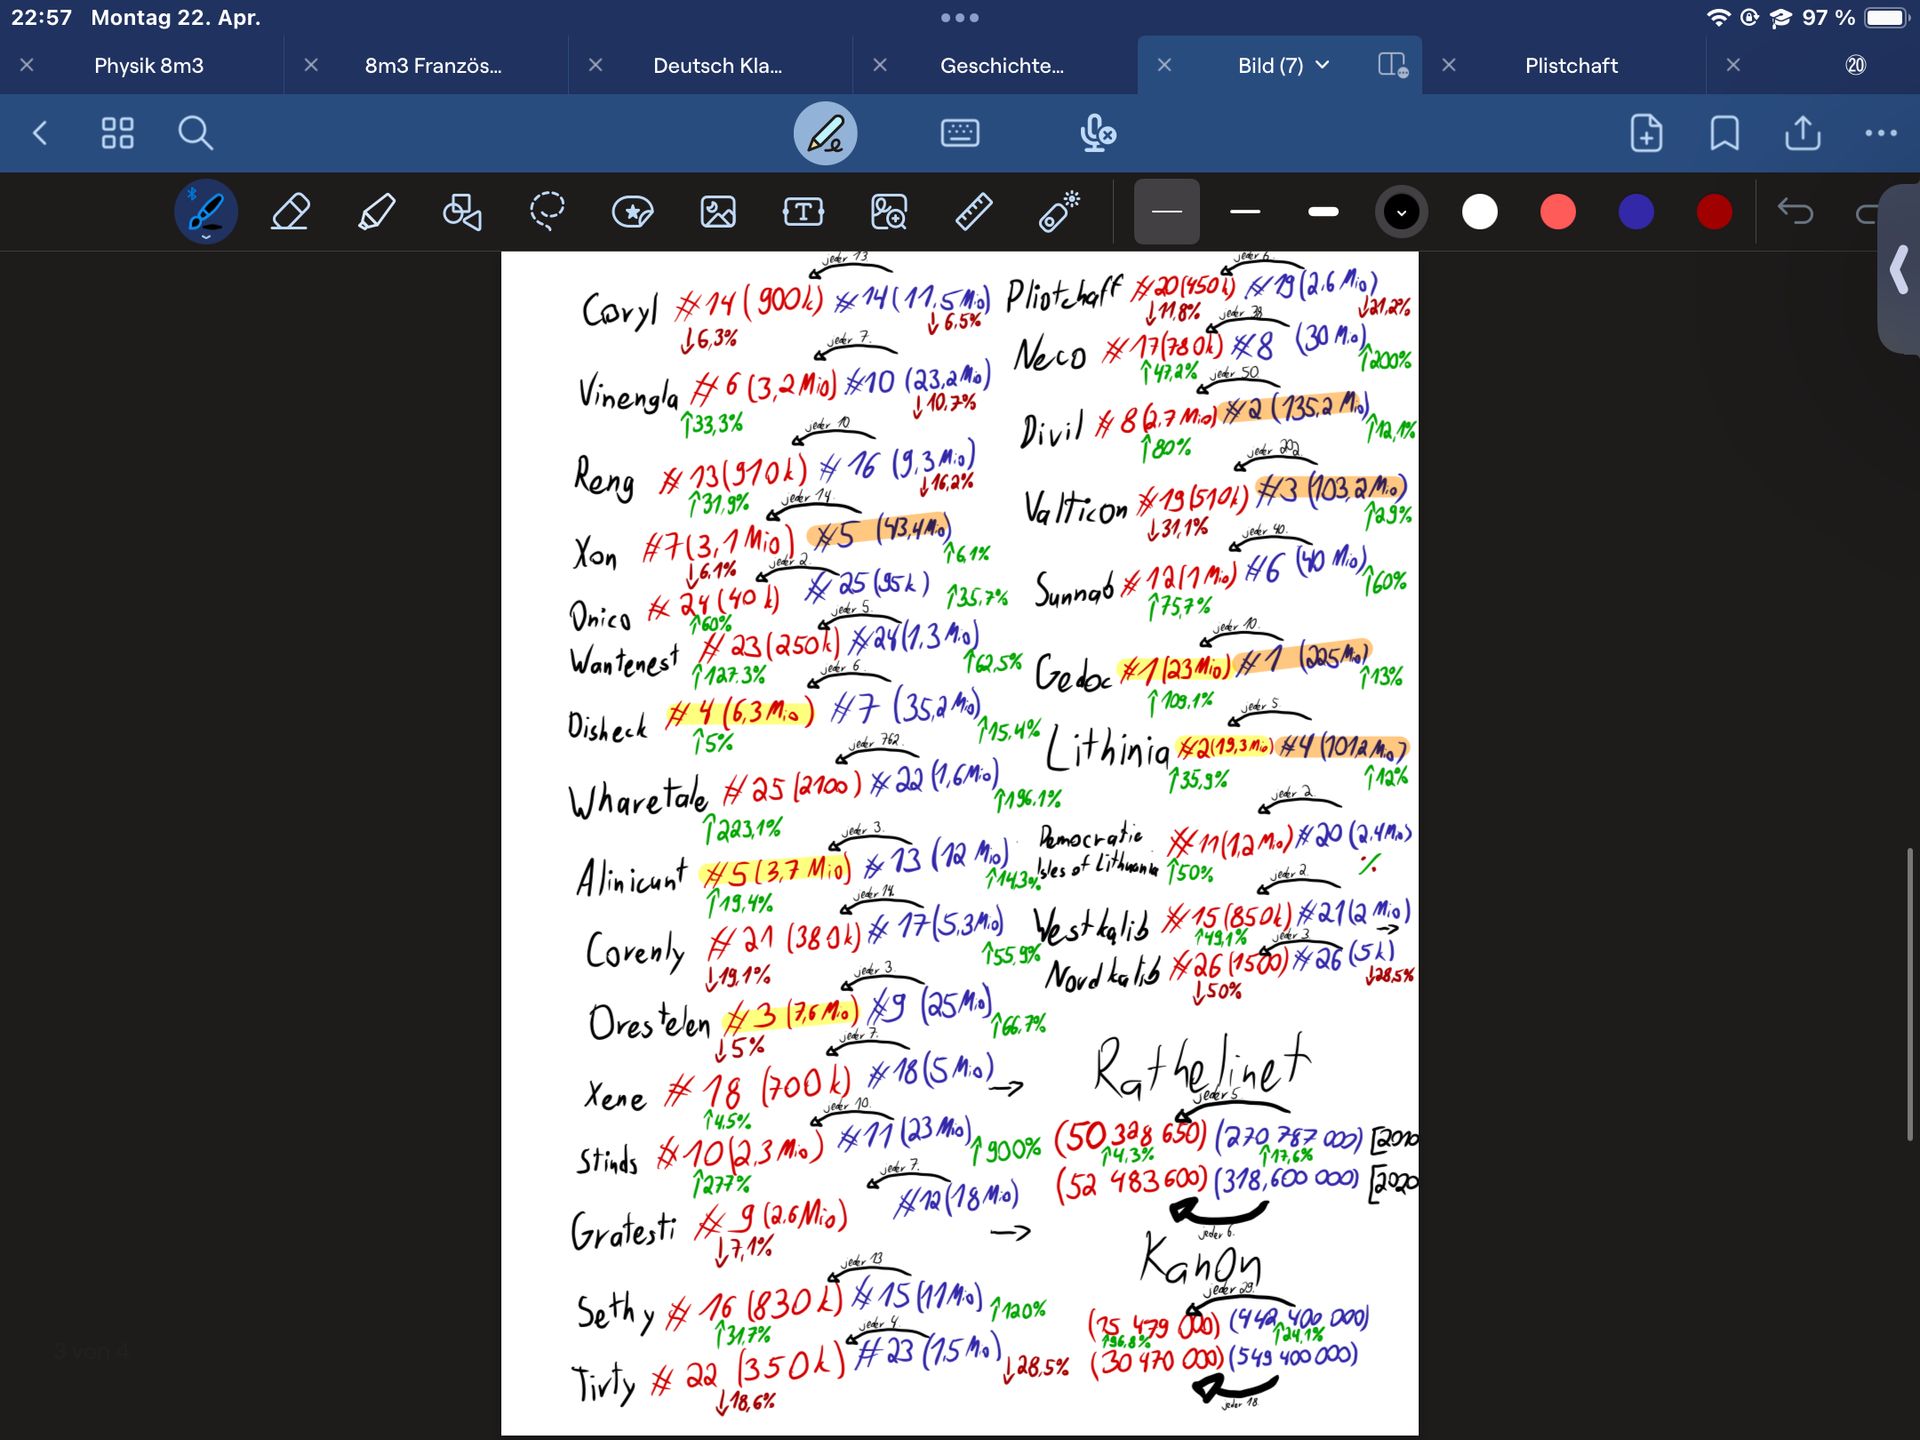 22:57 Montag 22. Apr.
97 %
Physik 8m3
8m3 Französ...
Deutsch Kla...
Geschichte...
Bild (7)
Plistchaft
20
jeder 13
Coryl #14 (900k) #14 (11,5 Mio)
↓6,3% ↓6,5%
jeder 7.
Vinengla #6 (3,2 Mio) #10 (23,2 Mio)
↑33,3% ↓10,7%
jeder 10
Reng #13 (910k) #16 (9,3 Mio)
↑31,9% ↓16,2%
jeder 14
Xon #7 (3,1 Mio) #5 (43,4 Mio)
↓6,1% ↑6,1%
jeder 2
Onico #24 (40k) #25 (95k)
↑60% ↑35,7%
jeder 5.
Wantenest #23 (250k) #24 (1,3 Mio)
↑127,3% ↑62,5%
jeder 6
Disheck #4 (6,3 Mio) #7 (35,2 Mio)
↑5% ↑15,4%
jeder 762
Wharetale #25 (2100) #22 (1,6 Mio)
↑223,1% ↑196,1%
jeder 3.
Alinicunt #5 (3,7 Mio) #13 (12 Mio)
↑19,4% ↑14,3%
jeder 14.
Corenly #21 (380k) #17 (5,3 Mio)
↓19,1% ↑55,9%
jeder 3.
Orestelen #3 (7,6 Mio) #9 (25 Mio)
↓5% ↑66,7%
jeder 7.
Xene #18 (700k) #18 (5 Mio) →
↑4,5%
jeder 10.
Stinds #10 (2,3 Mio) #11 (23 Mio)
↑277% ↑900%
jeder 7.
Gratesti #9 (2,6 Mio) #12 (18 Mio) →
↓7,1%
jeder 13
Sethy #16 (830k) #15 (11 Mio)
↑31,7% ↑120%
jeder 4.
Tirty #22 (350k) #23 (1,5 Mio)
↓18,6% ↓28,5%
jeder 6.
Pliotchaff #20 (450k) #19 (2,6 Mio)
↓11,8% ↓21,2%
jeder 38
Neco #17 (780k) #8 (30 Mio)
↑47,2% ↑200%
jeder 50
Divil #8 (2,7 Mio) #2 (135,2 Mio)
↑80% ↑12,1%
jeder 202
Valticon #19 (510k) #3 (103,2 Mio)
↓31,1% ↑29%
jeder 40.
Sunnab #12 (1 Mio) #6 (40 Mio)
↑75,7% ↑60%
jeder 10.
Gedoc #1 (23 Mio) #1 (225 Mio)
↑109,1% ↑13%
jeder 5
Lithinia #2 (19,3 Mio) #4 (101,2 Mio)
↑35,9% ↑12%
jeder 2.
Democratic
Isles of Lithuania #11 (1,2 Mio) #20 (2,4 Mio)
↑50% ⁒
jeder 2.
Westkalib #15 (850k) #21 (2 Mio)
↑49,1% →
jeder 3
Nordkalib #26 (1500) #26 (5k)
↓50% ↓28,5%
Rathelinet
jeder 5
(50 328 650) (270 787 000) [2010
↑4,3% ↑17,6%
(52 483 600) (318,600 000) [2020
jeder 6.
KanOn
jeder 29.
(15 479 000) (442 400 000)
↑96,8% ↑24,1%
(30 470 000) (549 400 000)
jeder 18
3 von 4